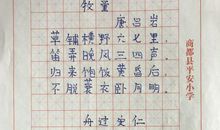 牧童
唐 吕岩
草铺横野六七里
笛弄晚风三四声
归来饱饭黄昏后
不脱蓑衣卧月明
舟过安仁
商都县平安小学